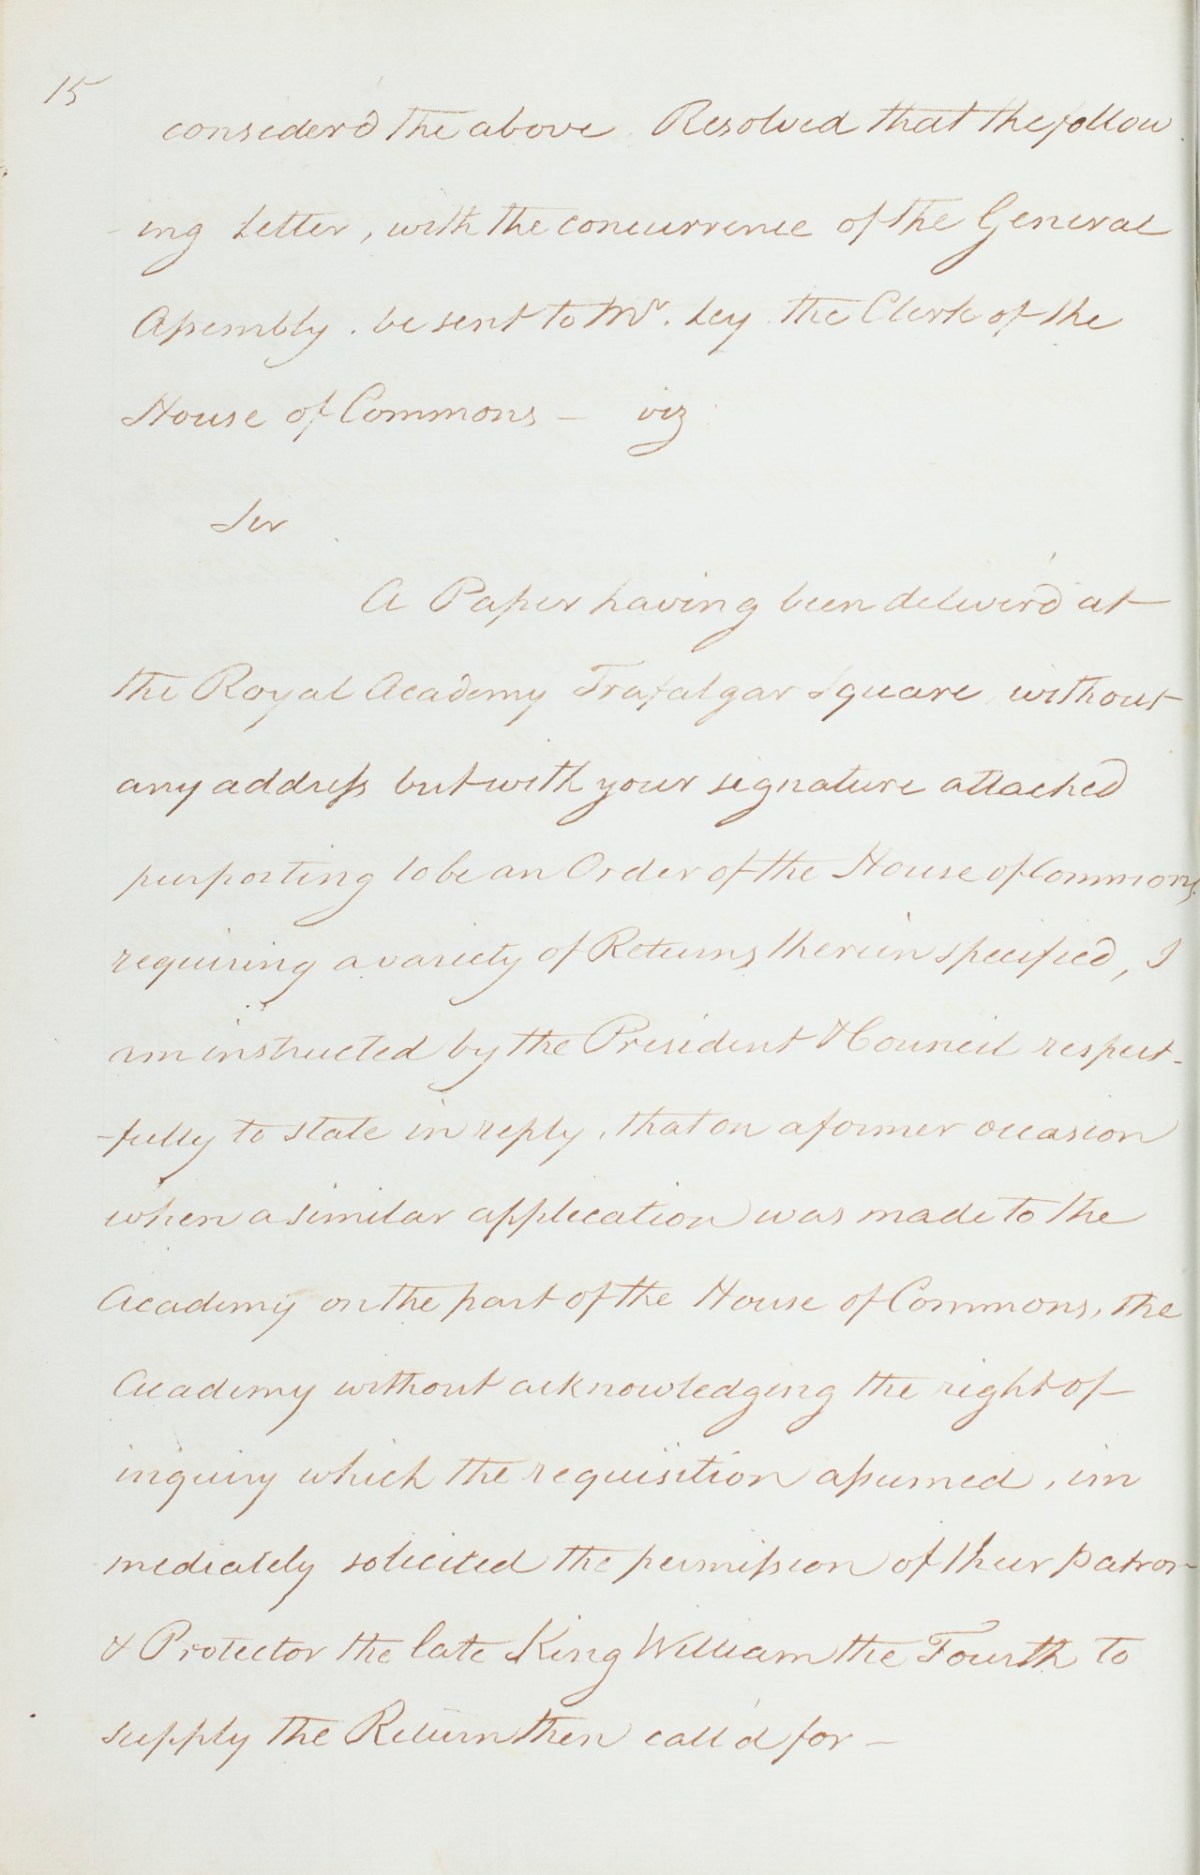 15
consider'd the above. Resolved that the follow
ing Letter, with the concurrence of the General
Assembly. be sent to Mr. Ley the Clerk of the
House of Commons — viz
Sir
A Paper having been deliver'd at
the Royal Academy Trafalgar Square without
any address but with your signature attached
purporting to be an Order of the House of Commons,
requiring a variety of Returns therein specified, I
am instructed by the President & Council respect-
-fully to state in reply, that on a former occasion
when a similar application was made to the
Academy on the part of the House of Commons, the
Academy without acknowledging the right of
inquiry which the requisition assumed, im
mediately solicited the permission of their patron
& Protector the late King William the Fourth to
supply the Return then call'd for —